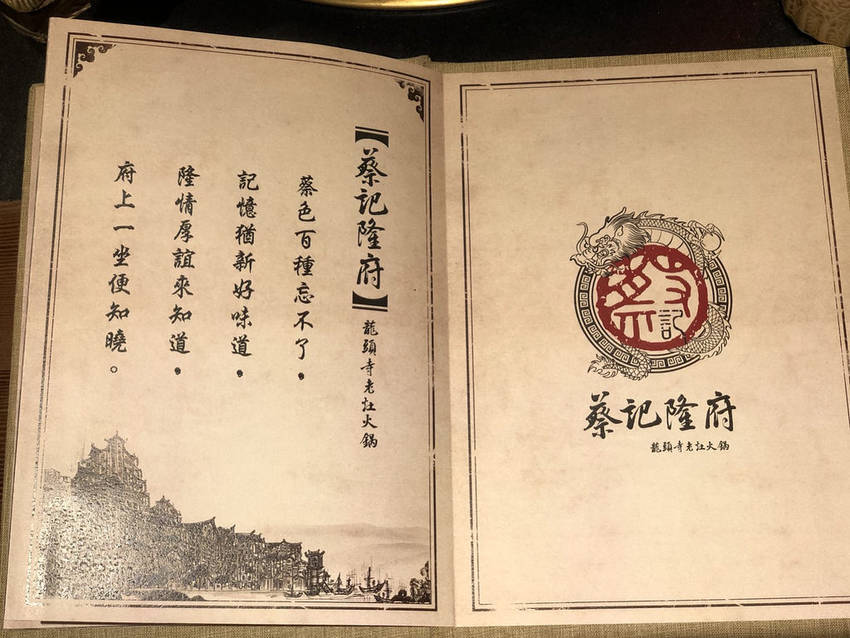 【蔡記隆府】龍頭寺老灶火鍋
蔡色百種忘不了，
記憶猶新好味道，
隆情厚誼來知道，
府上一坐便知曉。
蔡記
蔡記隆府
龍頭寺老灶火鍋